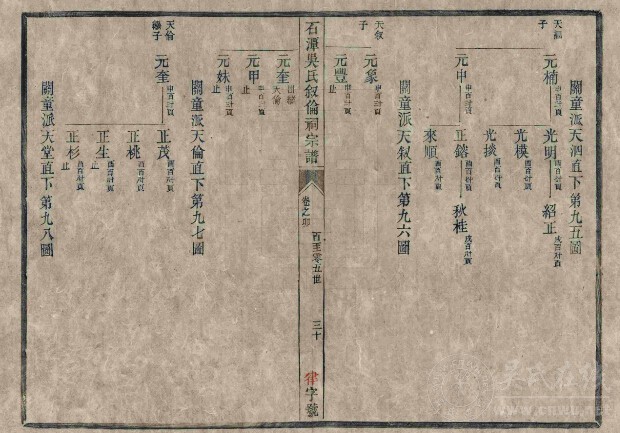 關童派天泗直下第九五圖
天福
子
元楠 申百卅頁
光明 酉百卅頁
紹正 戌百卅頁
光模 酉百卅頁
光掞 酉百卅頁
元申 申百卅頁
正鎔 酉百卅頁
秋桂 戌百卅頁
來順 酉百卅頁
關童派天叙直下第九六圖
天叙
子
元象 申百卅頁
元豐 申百卅頁
止
石潭吳氏叙倫祠宗譜
卷之
百至零五世
三十
律字號
元奎 出繼天倫
元甲 申百卅頁
止
元妹 申百卅頁
止
關童派天倫直下第九七圖
天倫
繼子
元奎 申百卅頁
正茂 酉百卅頁
正桃 酉百卅頁
正生 酉百卅頁
止
正杉 酉百卅頁
止
關童派天堂直下第九八圖
www.cnwu.net